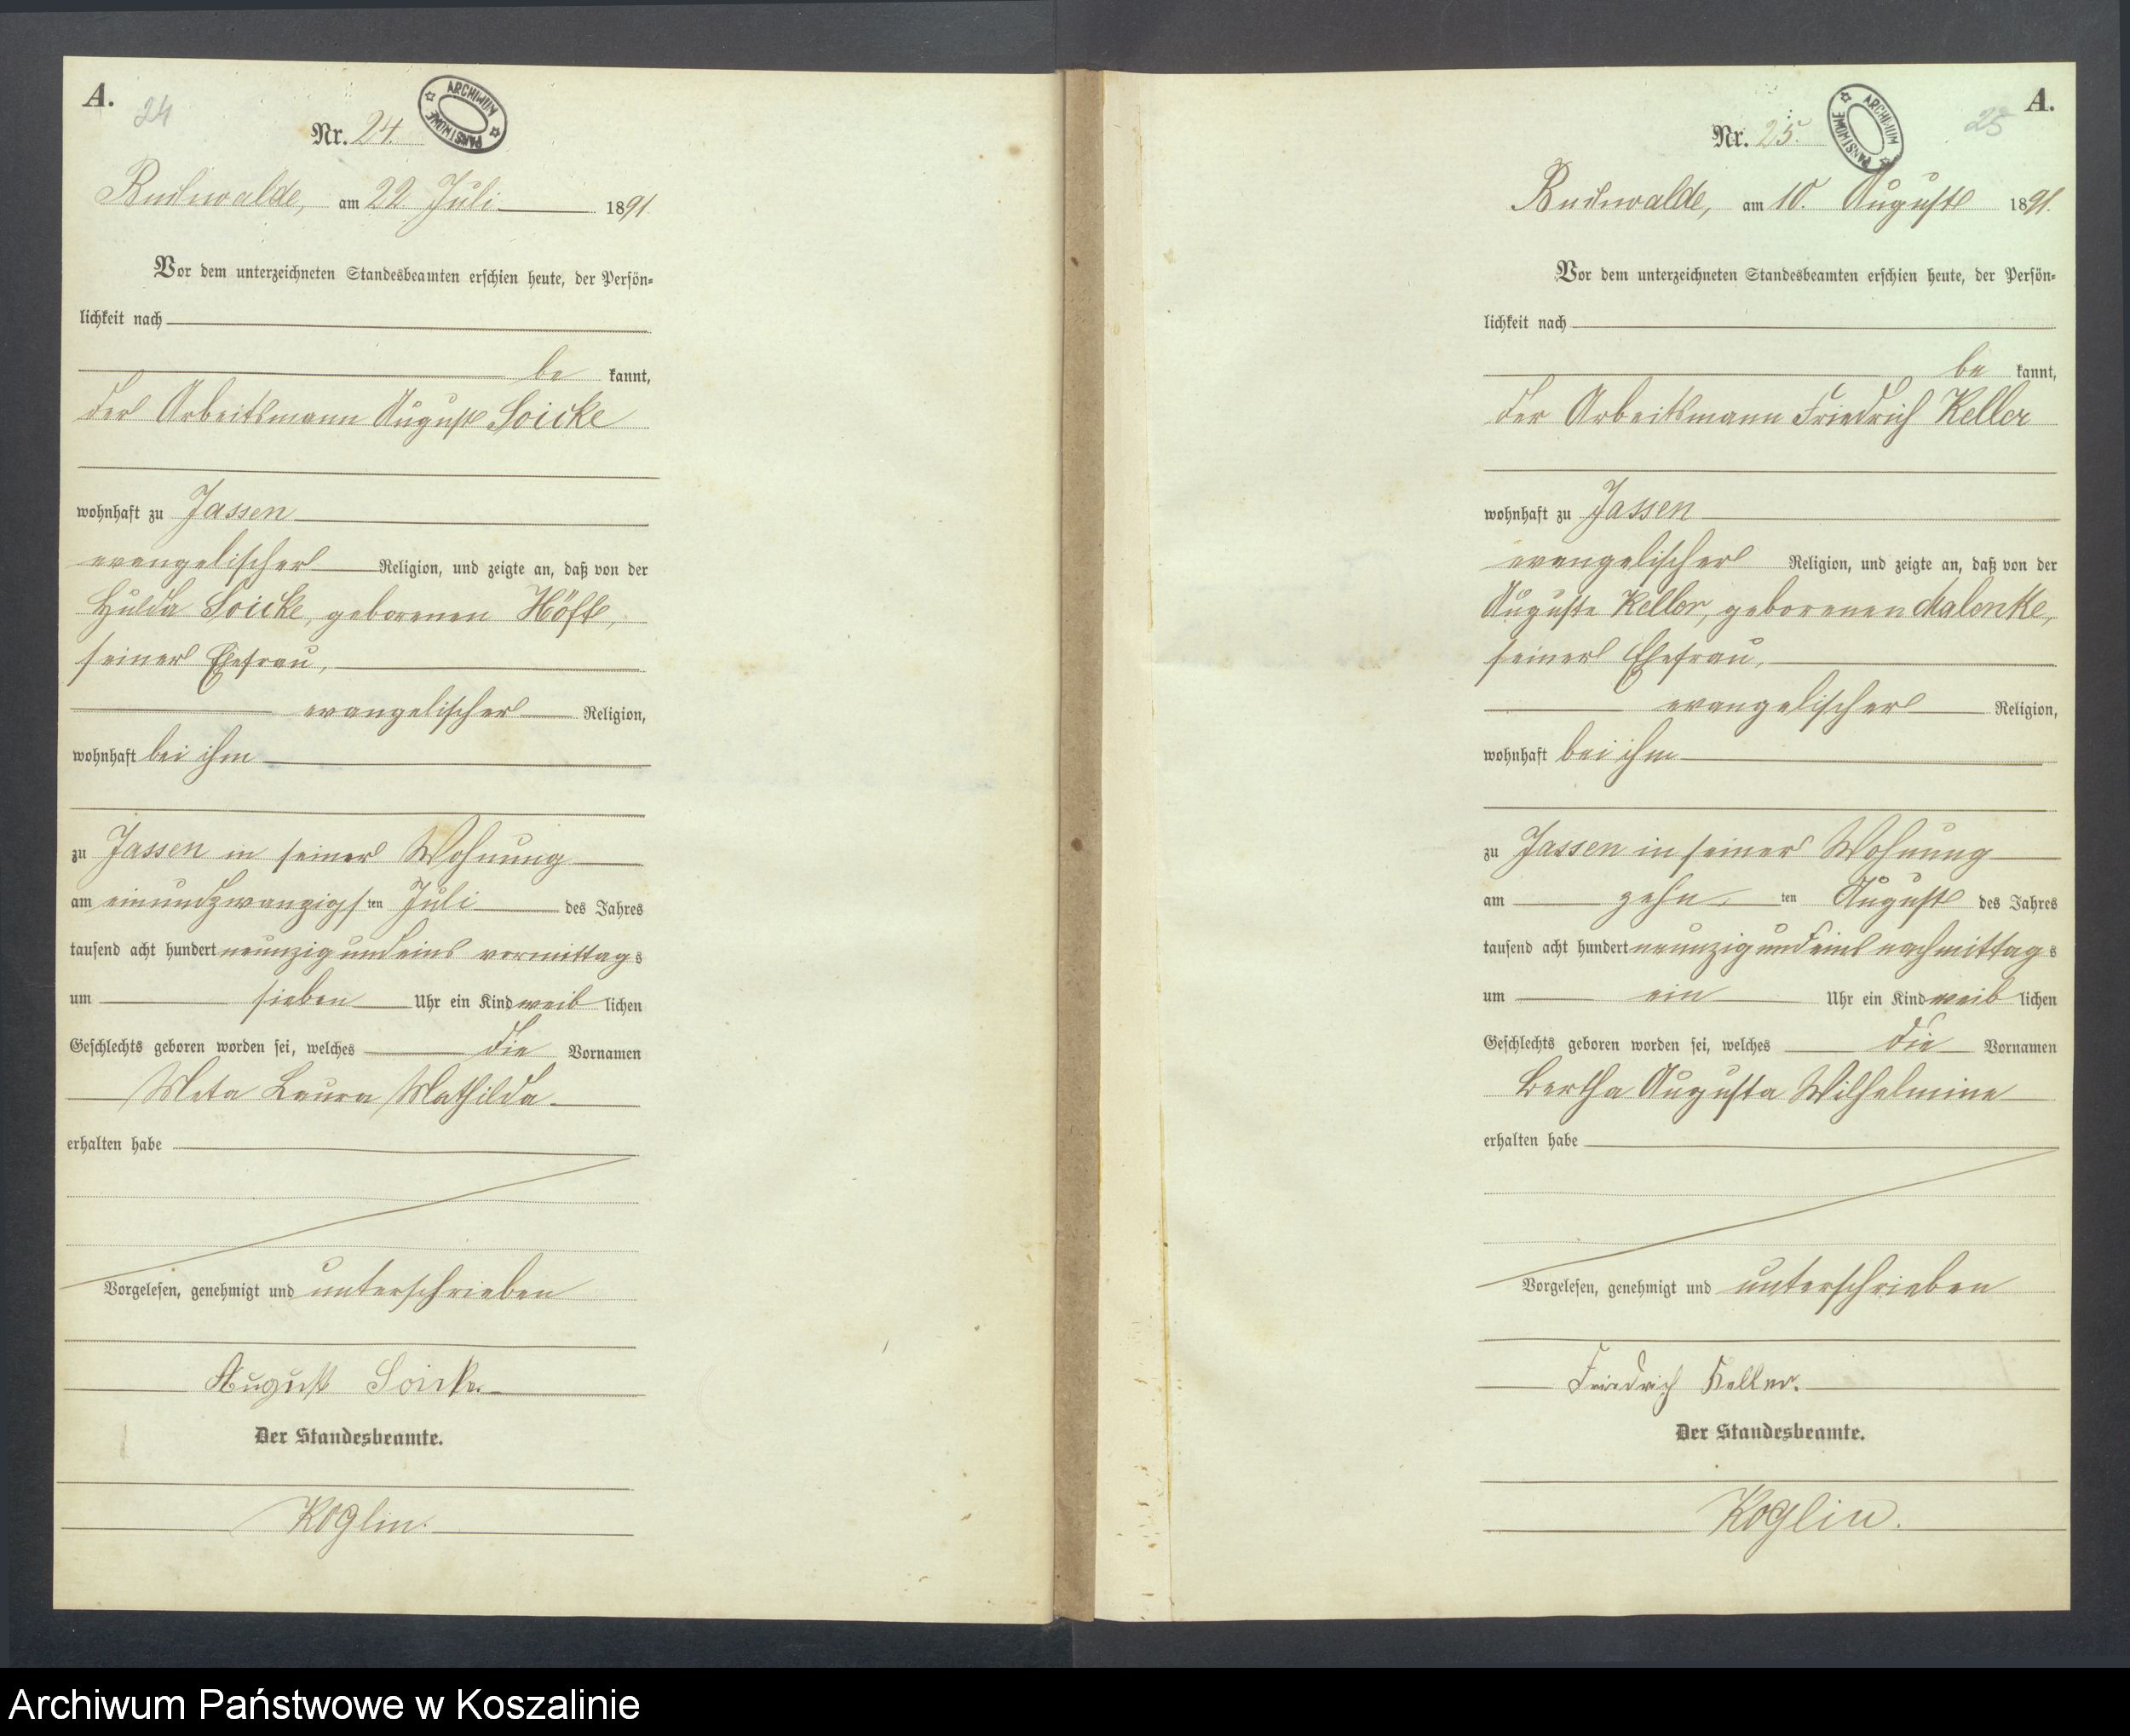 A.
24
Nr. 24.
ARCHIWUM PAŃSTWOWE
am 22 Juli 1891.
Vor dem unterzeichneten Standesbeamten erschien heute, der Persön-
lichkeit nach
be kannt,
der Arbeitsmann August Soicke
wohnhaft zu Jassen
evangelischer Religion, und zeigte an, daß von der
Hulda Soicke, geborenen Höft,
seiner Ehefrau,
evangelischer Religion,
wohnhaft bei ihm
zu Jassen in seiner Wohnung
am einundzwanzigsten Juli des Jahres
tausend acht hundert neunzig und eins vormittags
um sieben Uhr ein Kind weiblichen
Geschlechts geboren worden sei, welches die Vornamen
Meta Laura Mathilda
erhalten habe
Vorgelesen, genehmigt und unterschrieben
August Soicke
Der Standesbeamte.
Koglin.
A.
25
Nr. 25.
ARCHIWUM PAŃSTWOWE
am 10. August 1891.
Vor dem unterzeichneten Standesbeamten erschien heute, der Persön-
lichkeit nach
be kannt,
der Arbeitsmann Friedrich Keller
wohnhaft zu Jassen
evangelischer Religion, und zeigte an, daß von der
Auguste Keller, geborenen Malenke,
seiner Ehefrau,
evangelischer Religion,
wohnhaft bei ihm
zu Jassen in seiner Wohnung
am zehnten August des Jahres
tausend acht hundert neunzig und eins nachmittags
um ein Uhr ein Kind weiblichen
Geschlechts geboren worden sei, welches die Vornamen
Bertha Augusta Wilhelmine
erhalten habe
Vorgelesen, genehmigt und unterschrieben
Friedrich Keller.
Der Standesbeamte.
Koglin.
Archiwum Państwowe w Koszalinie